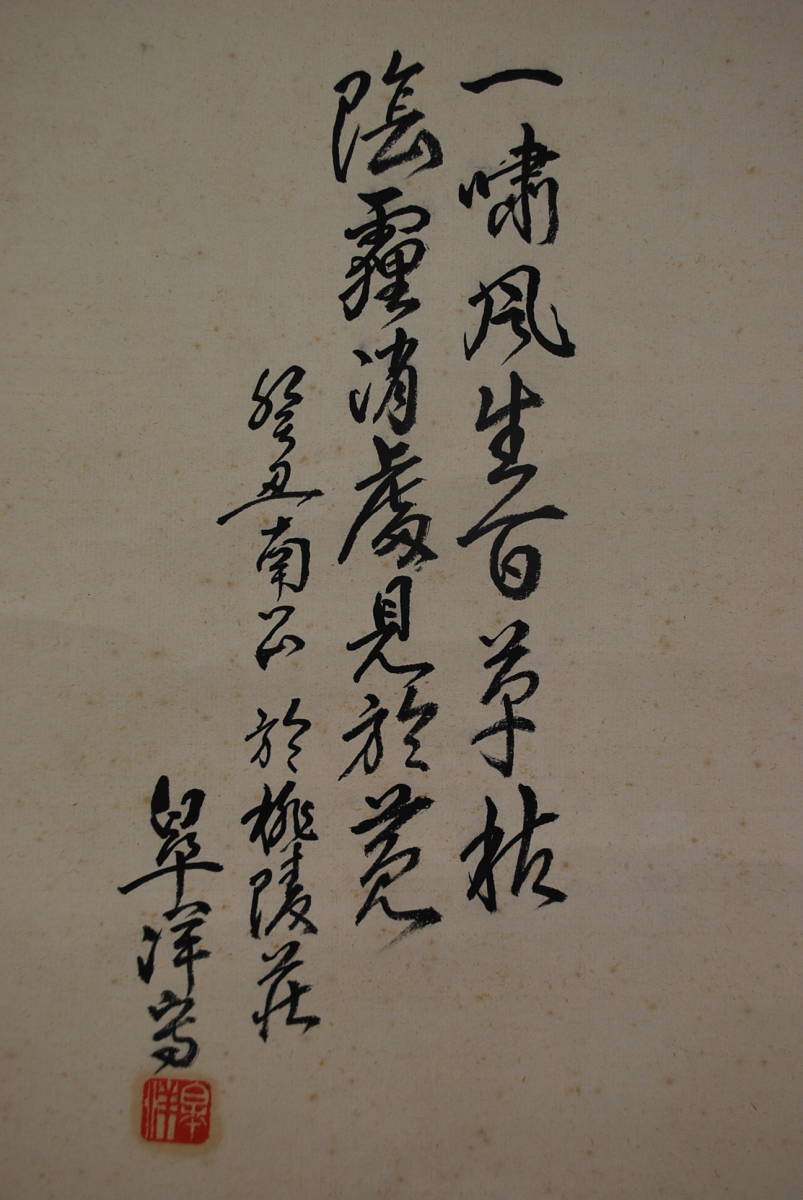 一嘯風生百草枯
陰霾消處見於菟
癸丑南呂 於桃陵莊
皐洋寫
皐洋